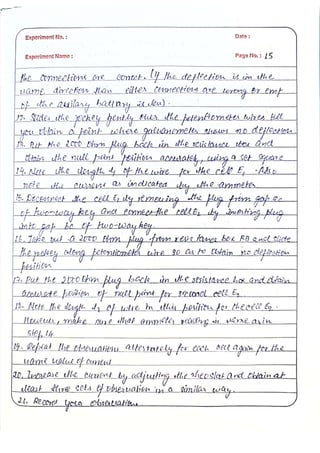 Experiment No. :
Date :
Experiment Name :
Page No. : 15
the connections are correct. (If the deflection is in the
same direction then either connections are wrong or emf
of the auxilary battery is low).
12. Slides the jockey gently over the potentiometer wires till
you obtain a point where galvanometer shows no deflection.
13. Put the 2000 ohm plug back in the resistance box and
obtain the null point position accurately, using a set square
14. Note the length l₁ of the wire for the cell E₁. Also
note the current as indicated by the ammeter.
15. Disconnect the cell E₁ by removing the plug from gap ac
of two-way key and connect the cell E₂ by inserting plug
into gap bc of two-way key.
16. Take out a 2000 ohm plug from resistance box RB and slide
the jockey along potentiometer wire so as to obtain no deflection
position.
17. Put the 2000 ohm plug back in the resistance box and obtain
accurate position of null point for second cell E₂
18. Note the length l₂ of wire in this position for the cell E₂.
However, make sure that ammeter reading is same as in
step 14.
19. Repeat the observations alternately for each cell again for the
same value of current
20. Increase the current by adjusting the rheostat and obtain at
least three sets of observation in a similar way.
21. Record your observations.